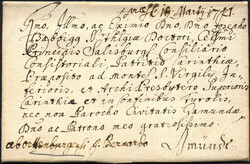 Jno, Illmo, ac Eximio Dno, Dno Josepho
Theologiæ Doctori, Celsmi
Principis Salisburg: Consiliario
Consistoriali, Patritio Carinthiæ
Præposito ad montem S. Virgilij In=
ferioris, et Archi Presbytero Superioris
Carinthiæ et in confinibus Tyrolis,
nec non Parocho Civitatis Gamundæ
Dno ac Patrono meo gratiosissimo
S. Bernardo
Gmundt